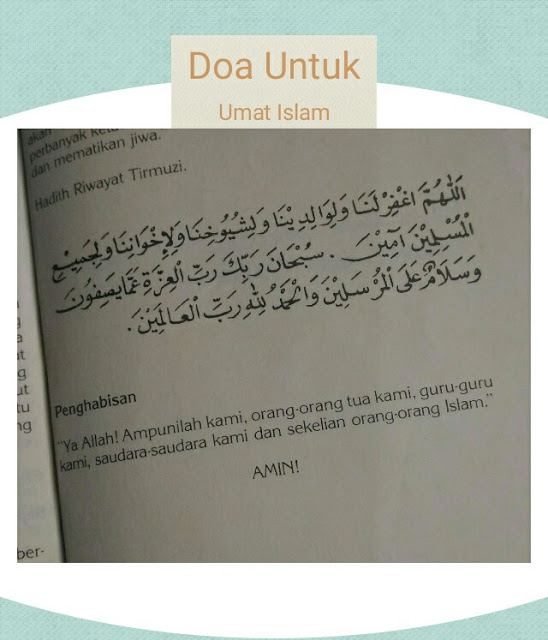 Doa Untuk
Umat Islam
akan
perbanyak
dan mematikan jiwa.
Hadith Riwayat Tirmuzi.
اَللّٰهُمَّ اغْفِرْ لَنَا وَلِوَالِدِيْنَا وَلِشُيُوْخِنَا وَلِإِخْوَانِنَا وَلِجَمِيْعِ
الْمُسْلِمِيْنَ آمِيْنَ . سُبْحَانَ رَبِّكَ رَبِّ الْعِزَّةِ عَمَّا يَصِفُوْنَ
وَسَلَامٌ عَلَى الْمُرْسَلِيْنَ وَالْحَمْدُ لِلّٰهِ رَبِّ الْعَالَمِيْنَ .
Penghabisan
“Ya Allah! Ampunilah kami, orang-orang tua kami, guru-guru
kami, saudara-saudara kami dan sekelian orang-orang Islam.”
AMIN!
ber-